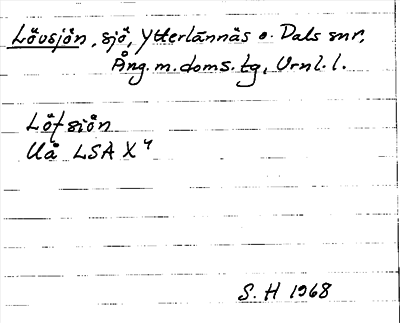 Lövsjön, sjö, Ytterlännäs o. Dals snr,
Ång. m. doms. tg, Vrnl. l.
Löfsiön
Uå LSA X 4
S. H 1968